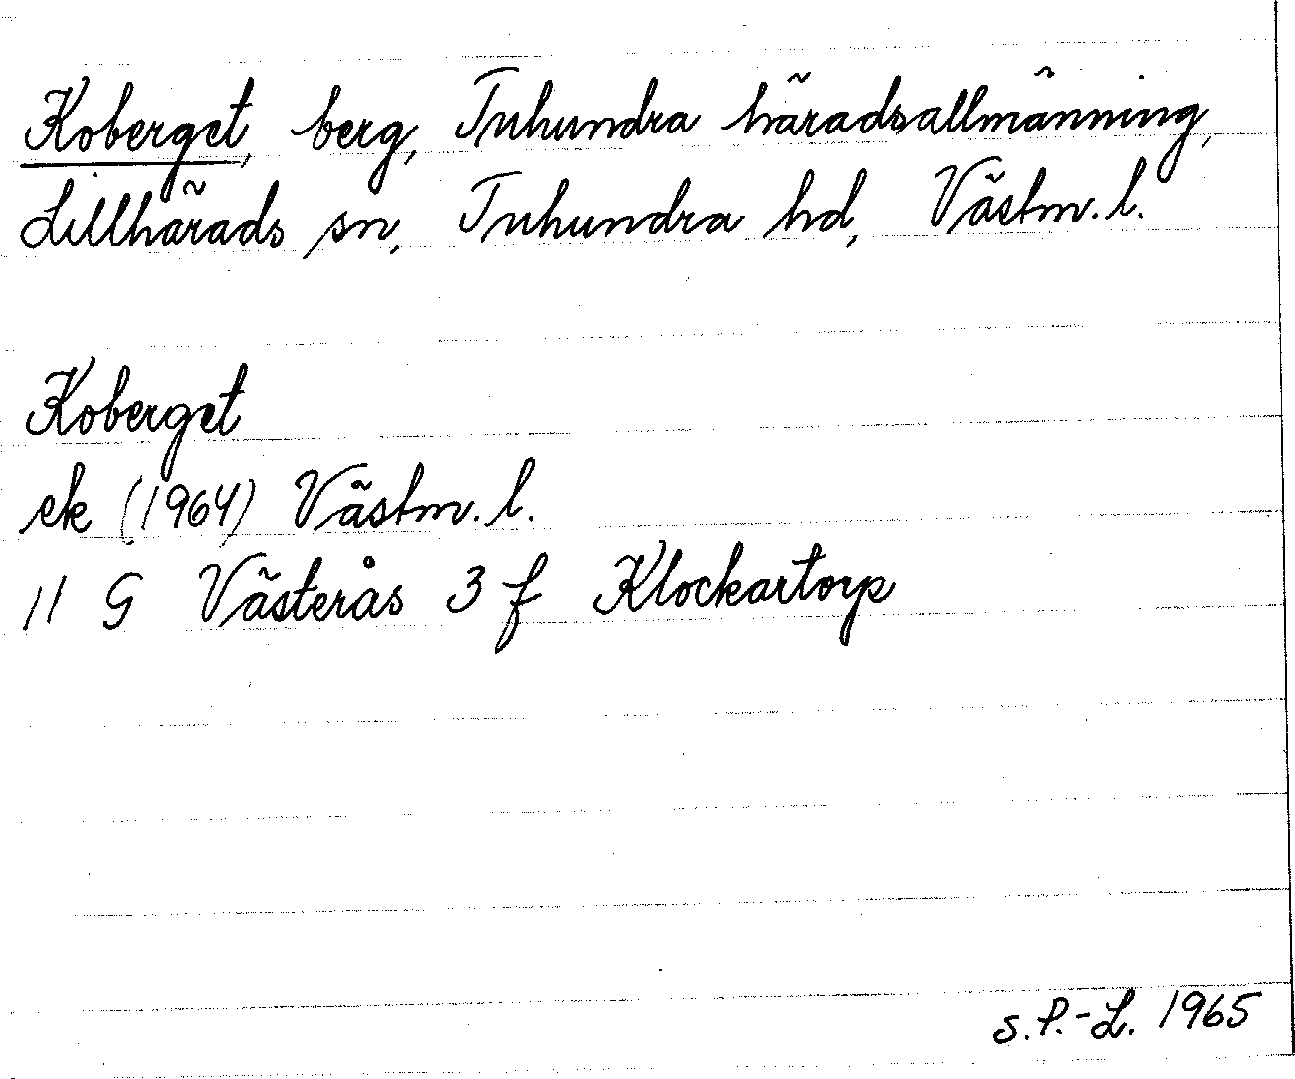 Koberget, berg, Tuhundra häradsallmänning,
Lillhärads sn, Tuhundra hd, Västm. l.
Koberget
ek (1964) Västm. l.
11 G Västerås 3 f Klockartorp
S. P.-L. 1965